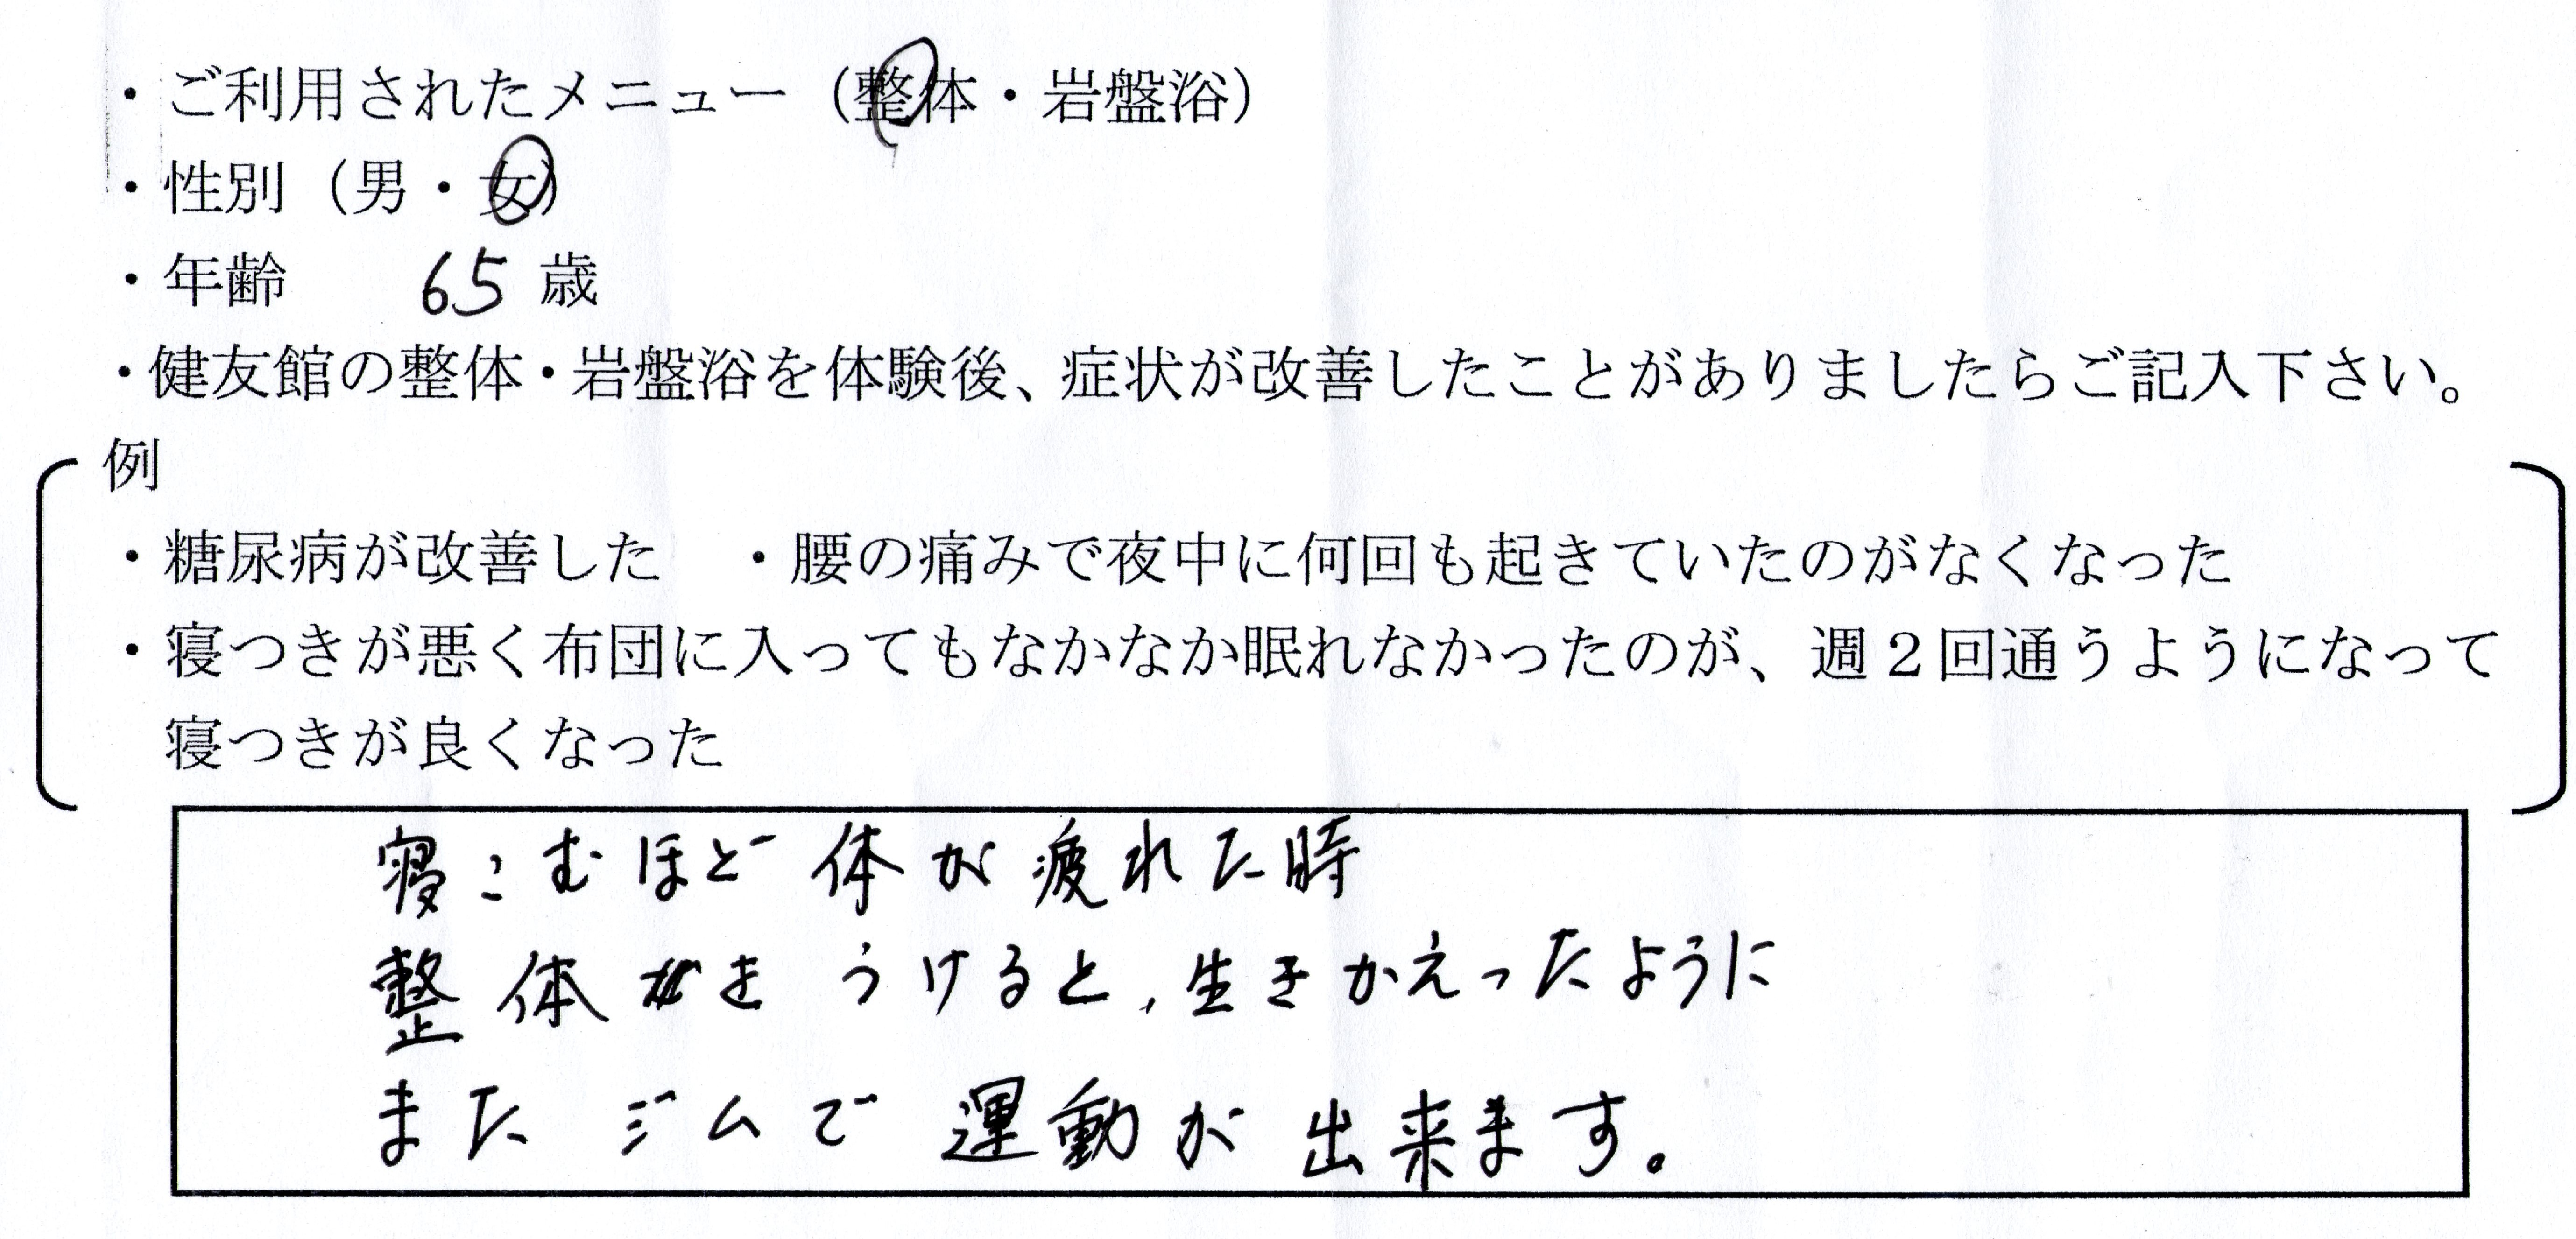 ・ご利用されたメニュー（整体・岩盤浴）
・性別（男・女）
・年齢　65 歳
・健友館の整体・岩盤浴を体験後、症状が改善したことがありましたらご記入下さい。
例
・糖尿病が改善した　・腰の痛みで夜中に何回も起きていたのがなくなった
・寝つきが悪く布団に入ってもなかなか眠れなかったのが、週２回通うようになって
寝つきが良くなった
寝こむほど体が疲れた時
整体をうけると、生きかえったように
またジムで運動が出来ます。